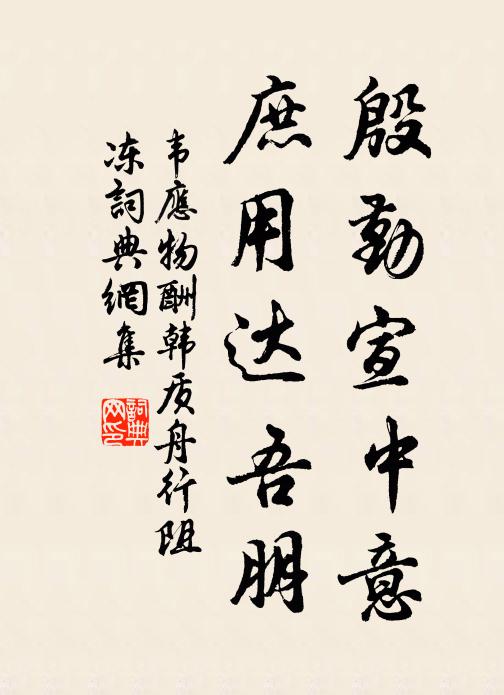 殷勤宣中意
庶用达吾朋
韦應物酬韩质舟行阻
冻詞典網集
詞典
网印